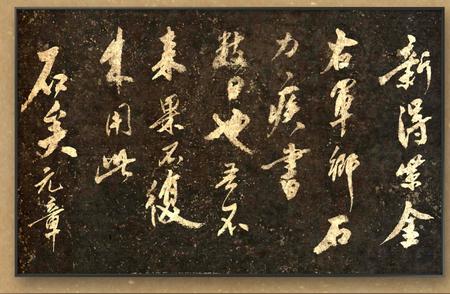 新得紫金
右軍鄉石
力疾書
數日也吾不
来果不復
来用此
石矣元章